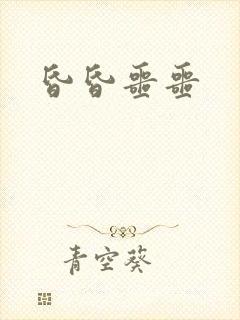 昏昏噩噩
青空葵